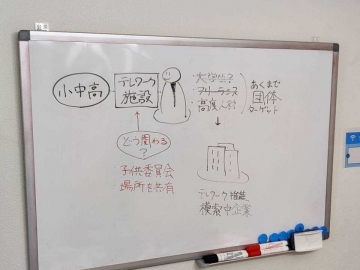 小中高
テレワーク
施設
大学生
フリーランス
高度人材
あくまで
団体
ターゲット
どう関わる
?
子供委員会
場所を共有
テレワーク推進
模索中企業